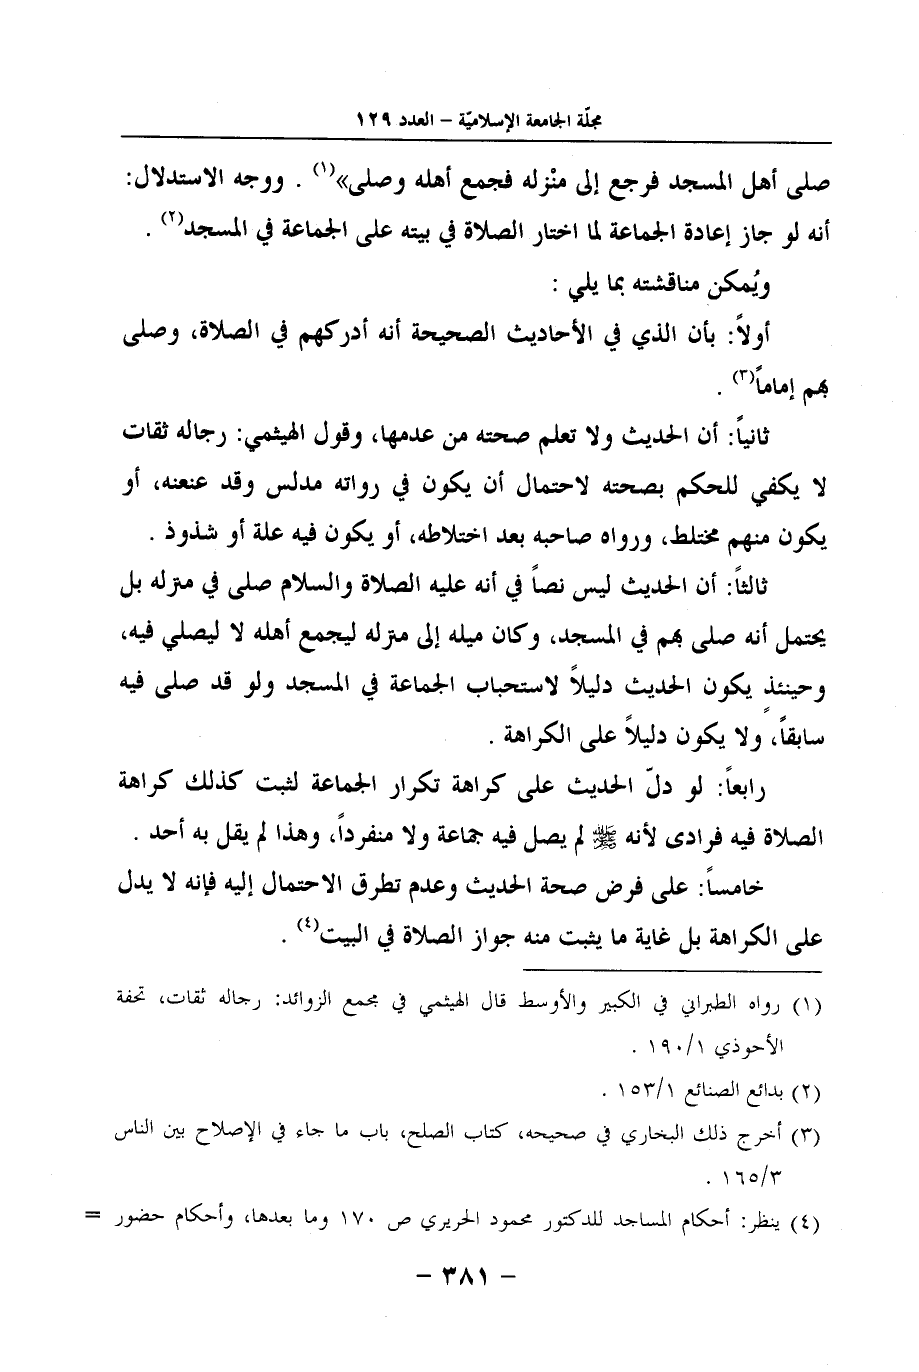 مجلّة الجامعة الإسلاميّة – العدد ١٢٩
صلى أهل المسجد فرجع إلى منْزله فجمع أهله وصلى»(١) . ووجه الاستدلال:
أنه لو جاز إعادة الجماعة لما اختار الصلاة في بيته على الجماعة في المسجد(٢) .
ويُمكن مناقشته بما يلي :
أولاً: بأن الذي في الأحاديث الصحيحة أنه أدركهم في الصلاة، وصلى
بهم إماماً(٣) .
ثانياً: أن الحديث ولا تعلم صحته من عدمها، وقول الهيثمي: رجاله ثقات
لا يكفي للحكم بصحته لاحتمال أن يكون في رواته مدلس وقد عنعنه، أو
يكون منهم مختلط، ورواه صاحبه بعد اختلاطه، أو يكون فيه علة أو شذوذ .
ثالثاً: أن الحديث ليس نصاً في أنه عليه الصلاة والسلام صلى في منزله بل
يحتمل أنه صلى بهم في المسجد، وكان ميله إلى منزله ليجمع أهله لا ليصلي فيه،
وحينئذٍ يكون الحديث دليلاً لاستحباب الجماعة في المسجد ولو قد صلى فيه
سابقاً، ولا يكون دليلاً على الكراهة .
رابعاً: لو دلّ الحديث على كراهة تكرار الجماعة لثبت كذلك كراهة
الصلاة فيه فرادى لأنه ﷺ لم يصل فيه جماعة ولا منفرداً، وهذا لم يقل به أحد .
خامساً: على فرض صحة الحديث وعدم تطرق الاحتمال إليه فإنه لا يدل
على الكراهة بل غاية ما يثبت منه جواز الصلاة في البيت(٤) .
(١) رواه الطبراني في الكبير والأوسط قال الهيثمي في مجمع الزوائد: رجاله ثقات، تحفة
الأحوذي ١٩٠/١ .
(٢) بدائع الصنائع ١٥٣/١ .
(٣) أخرج ذلك البخاري في صحيحه، كتاب الصلح، باب ما جاء في الإصلاح بين الناس
١٦٥/٣ .
(٤) ينظر: أحكام المساجد للدكتور محمود الحريري ص ١٧٠ وما بعدها، وأحكام حضور =
– ٣٨١ –